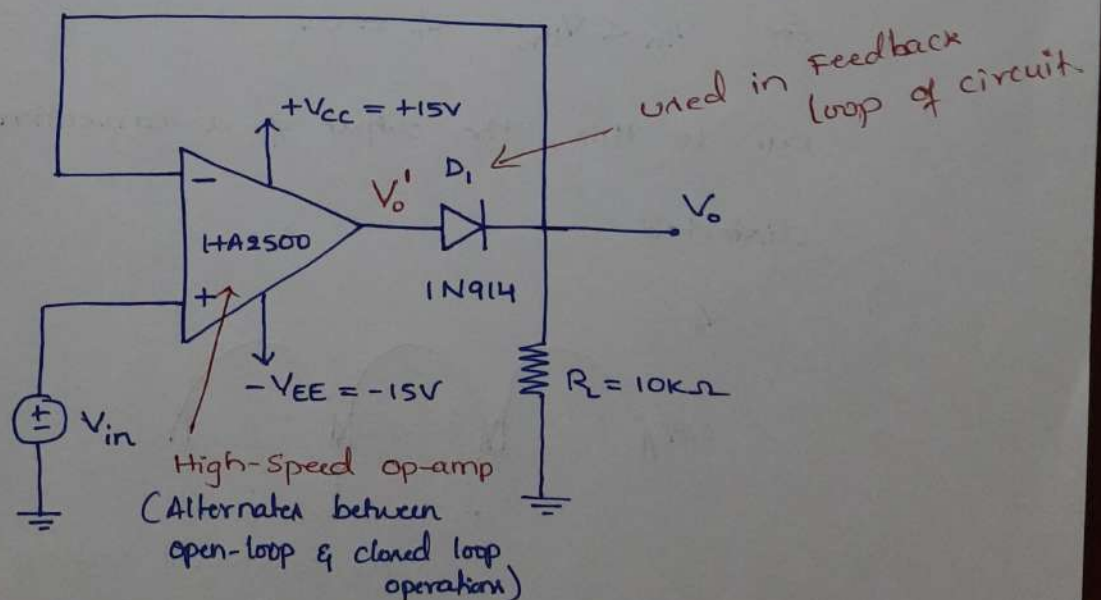 +Vcc = +15V
used in Feedback
loop of circuit
D₁
Vo'
Vo
−
HA2500
+
1N914
−VEE = −15V
RL = 10KΩ
+
−
Vin
High-Speed op-amp
(Alternates between
open-loop & closed loop
operations)